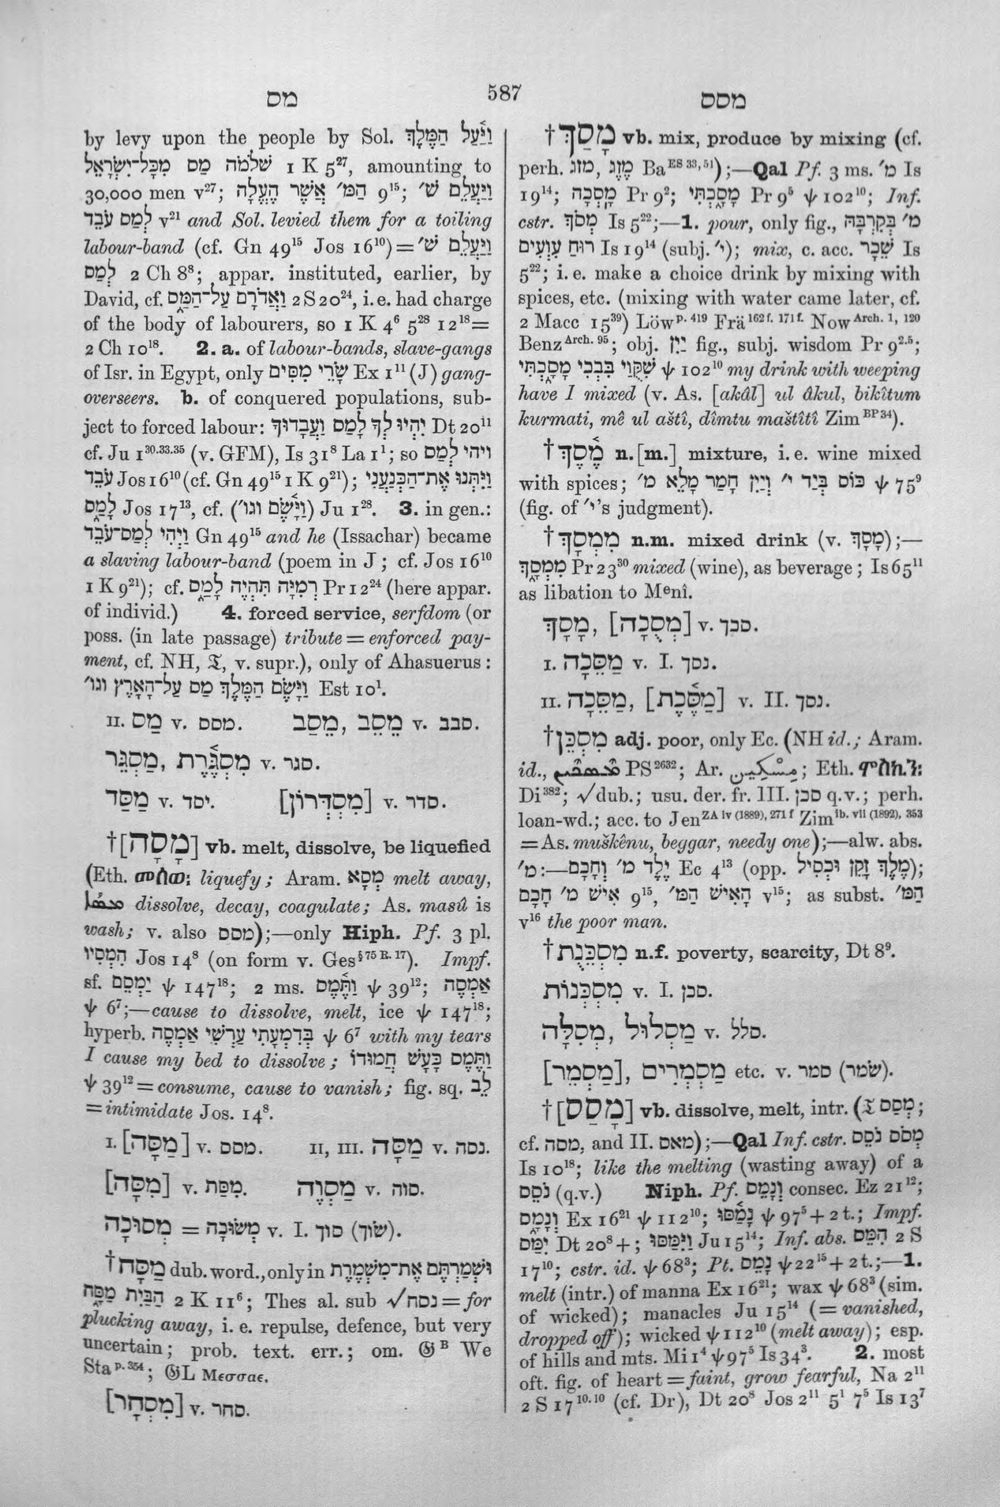 מס
587
מסס
by levy upon the people by Sol. וַיַּ֫עַל הַמֶּלֶךְ
שְׁלֹמֹה מַס מִכָּל־יִשְׂרָאֵל 1 K 5²⁷, amounting to
30,000 men v²⁷; הַמּ׳ אֲשֶׁר הֶעֱלָה 9¹⁵; וַיַּעֲלֵם שׁ׳
לְמַס עֹבֵד v²¹ and Sol. levied them for a toiling
labour-band (cf. Gn 49¹⁵ Jos 16¹⁰) = וַיַּעֲלֵם שׁ׳
לְמַס 2 Ch 8⁸; appar. instituted, earlier, by
David, cf. וַאֲדֹרָם עַל־הַמַּס 2 S 20²⁴, i.e. had charge
of the body of labourers, so 1 K 4⁶ 5²⁸ 12¹⁸ =
2 Ch 10¹⁸. 2. a. of labour-bands, slave-gangs
of Isr. in Egypt, only שָׂרֵי מִסִּים Ex 1¹¹ (J) gang-
overseers. b. of conquered populations, sub-
ject to forced labour: יִהְיוּ לְךָ לָמַס וַעֲבָדוּךָ Dt 20¹¹
cf. Ju 1³⁰·³³·³⁵ (v. GFM), Is 31⁸ La 1¹; so ויהי לְמַס
עֹבֵד Jos 16¹⁰ (cf. Gn 49¹⁵ 1 K 9²¹); וַיִּתְּנוּ אֶת־הַכְּנַעֲנִי
לָמַס Jos 17¹³, cf. (וַיָּ֫שֶׂם וגו׳) Ju 1²⁸. 3. in gen.:
וַיְהִי לְמַס־עֹבֵד Gn 49¹⁵ and he (Issachar) became
a slaving labour-band (poem in J; cf. Jos 16¹⁰
1 K 9²¹); cf. רְמִיָּה תִּהְיֶה לָמַס Pr 12²⁴ (here appar.
of individ.) 4. forced service, serfdom (or
poss. (in late passage) tribute = enforced pay-
ment, cf. NH, 𝔗, v. supr.), only of Ahasuerus:
וַיָּשֶׂם הַמֶּלֶךְ מַס עַל־הָאָרֶץ וגו׳ Est 10¹.
II. מַס v. מסס. מֵסֵב, מֵסַב v. סבב.
מַסְגֵּר, מִסְגֶּ֫רֶת v. סגר.
מַסַּד v. יסד. [מִסְדְּרוֹן] v. סדר.
†[מָסָה] vb. melt, dissolve, be liquefied
(Eth. መሰወ: liquefy; Aram. מְסָא melt away,
dissolve, decay, coagulate; As. masû is
wash; v. also מסס);—only Hiph. Pf. 3 pl.
הִמְסִיו Jos 14⁸ (on form v. Ges§ ⁷⁵ ᴿ· ¹⁷). Impf.
sf. יַמְסֵם ψ 147¹⁸; 2 ms. וַתֶּ֫מֶס ψ 39¹²; אַמְסֶה
ψ 6⁷;—cause to dissolve, melt, ice ψ 147¹⁸;
hyperb. בְּדִמְעָתִי עַרְשִׂי אַמְסֶה ψ 6⁷ with my tears
I cause my bed to dissolve; וַתֶּמֶס כָּעָשׁ חֲמוּדוֹ
ψ 39¹² = consume, cause to vanish; fig. sq. לֵב
= intimidate Jos. 14⁸.
I. [מַסָּה] v. מסס. II, III. מַסָּה v. נסה.
[מִסָּה] v. מִסַּת. מַסְוֶה v. סוה.
מְסוּכָה = מְשׂוּכָה v. I. סוך (שׂוך).
†מַסָּח dub. word., only in וּשְׁמַרְתֶּם אֶת־מִשְׁמֶרֶת
הַבַּיִת מַסָּח 2 K 11⁶; Thes al. sub √נסח = for
plucking away, i. e. repulse, defence, but very
uncertain; prob. text. err.; om. 𝔊ᴮ We
Sta ᵖ· ³⁵⁴; 𝔊L Μεσσαε.
[מִסְחָר] v. סחר.
†מָסַךְ vb. mix, produce by mixing (cf.
perh. מֶזֶג, מזוג Ba ᴱˢ ³³, ⁵¹);—Qal Pf. 3 ms. מ׳ Is
19¹⁴; מָסְכָה Pr 9²; מָסָכְתִּי Pr 9⁵ ψ 102¹⁰; Inf.
cstr. מְסֹךְ Is 5²²;—1. pour, only fig., מ׳ בְּקִרְבָּהּ
רוּחַ עִוְעִים Is 19¹⁴ (subj. י׳); mix, c. acc. שֵׁכָר Is
5²²; i. e. make a choice drink by mixing with
spices, etc. (mixing with water came later, cf.
2 Macc 15³⁹) Löw ᵖ· ⁴¹⁹ Frä ¹⁶² ᶠ· ¹⁷¹ ᶠ· Now ᴬʳᶜʰ· ¹, ¹²⁰
Benz ᴬʳᶜʰ· ⁹⁵; obj. יַיִן fig., subj. wisdom Pr 9²·⁵;
שִׁקֻּוַי בִּבְכִי מָסָכְתִּי ψ 102¹⁰ my drink with weeping
have I mixed (v. As. [akâl] ul âkul, bikîtum
kurmati, mê ul aštî, dîmtu maštîtî Zim ᴮᴾ ³⁴).
†מֶ֫סֶךְ n.[m.] mixture, i. e. wine mixed
with spices; כּוֹס בְּיַד י׳ וְיַיִן חָמַר מָלֵא מ׳ ψ 75⁹
(fig. of י׳’s judgment).
†מִמְסָךְ n.m. mixed drink (v. מָסָךְ);—
מִמְסָךְ Pr 23³⁰ mixed (wine), as beverage; Is 65¹¹
as libation to Mᵉnî.
מָסָךְ, [מְסֻכָה] v. סכך.
I. מַסֵּכָה v. I. נסך.
II. מַסֵּכָה, [מַסֶּ֫כֶת] v. II. נסך.
†מִסְכֵּן adj. poor, only Ec. (NH id.; Aram.
id., PS ²⁶³²; Ar. مِسْكِين; Eth. ምስኪን:
Di ³⁸²; √dub.; usu. der. fr. III. סכן q.v.; perh.
loan-wd.; acc. to Jen ᶻᴬ ⁱᵛ ⁽¹⁸⁸⁹⁾, ²⁷¹ ᶠ Zim ⁱᵇ· ᵛⁱⁱ ⁽¹⁸⁹²⁾, ³⁵³
= As. muškênu, beggar, needy one);—alw. abs.
מ׳:—יֶלֶד מ׳ וְחָכָם Ec 4¹³ (opp. מֶלֶךְ זָקֵן וּכְסִיל);
אִישׁ מ׳ חָכָם 9¹⁵, הָאִישׁ הַמּ׳ v¹⁵; as subst. הַמּ׳
v¹⁶ the poor man.
†מִסְכֵּנֻת n.f. poverty, scarcity, Dt 8⁹.
מִסְכְּנוֹת v. I. סכן.
מַסְלוּל, מְסִלָּה v. סלל.
[מַסְמֵר], מַסְמְרִים etc. v. סמר (שׂמר).
†[מָסַס] vb. dissolve, melt, intr. (𝔗 מְסַס;
cf. מסה, and II. מאס);—Qal Inf. cstr. מְסֹס נֹסֵס
Is 10¹⁸; like the melting (wasting away) of a
נֹסֵס (q.v.) Niph. Pf. וְנָמֵס consec. Ez 21¹²;
וְנָמָס Ex 16²¹ ψ 112¹⁰; נָמַ֫סּוּ ψ 97⁵ + 2 t.; Impf.
יִמַּס Dt 20⁸ +; וַיִּמַּסּוּ Ju 15¹⁴; Inf. abs. הִמֵּס 2 S
17¹⁰; cstr. id. ψ 68³; Pt. נָמֵס ψ 22¹⁵ + 2 t.;—1.
melt (intr.) of manna Ex 16²¹; wax ψ 68³ (sim.
of wicked); manacles Ju 15¹⁴ (= vanished,
dropped off); wicked ψ 112¹⁰ (melt away); esp.
of hills and mts. Mi 1⁴ ψ 97⁵ Is 34³. 2. most
oft. fig. of heart = faint, grow fearful, Na 2¹¹
2 S 17¹⁰·¹⁰ (cf. Dr), Dt 20⁸ Jos 2¹¹ 5¹ 7⁵ Is 13⁷